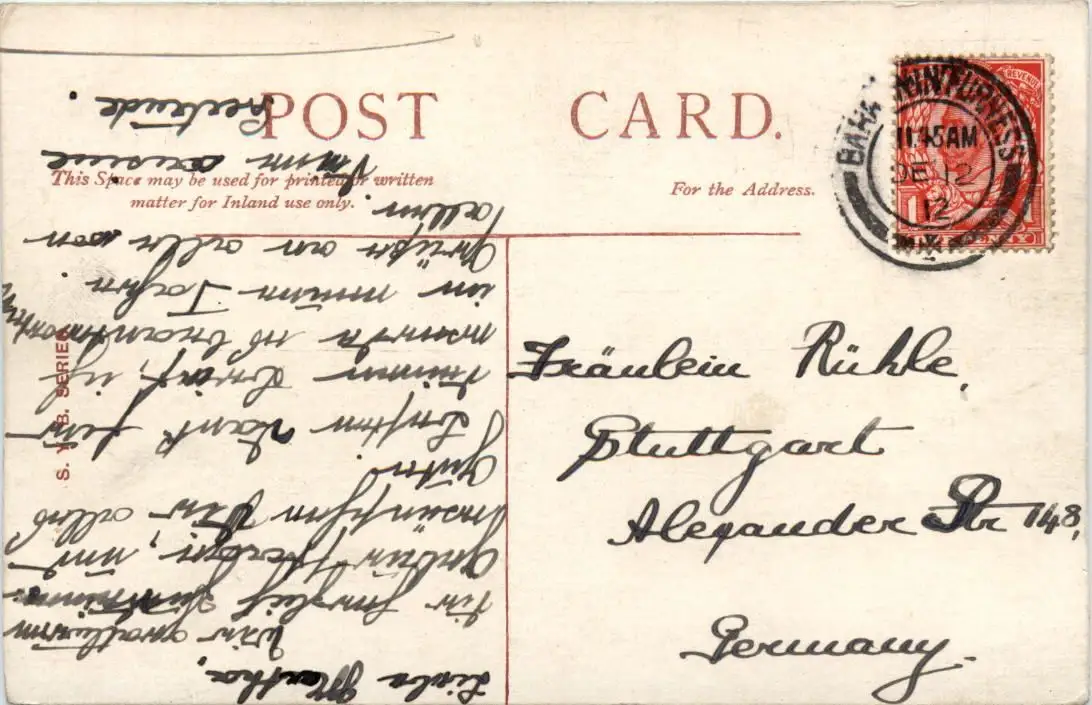 POST CARD.
This Space may be used for printed or written
matter for Inland use only.
For the Address.
S. V. B. SERIES
BARROW-IN-FURNESS
11.45AM
DE 12
12
REVENUE
Fräulein Rühle,
Stuttgart
Alexander Str 148,
Germany.
Liebe Martha,
Wir gratulieren
Dir herzlich
und
wünschen Dir alles
Gute.
Besten Dank für
Deinen Brief, ich
werde es beantworten
in
Grüße an alle von
allen.
Deine Cousine
Gertrude.